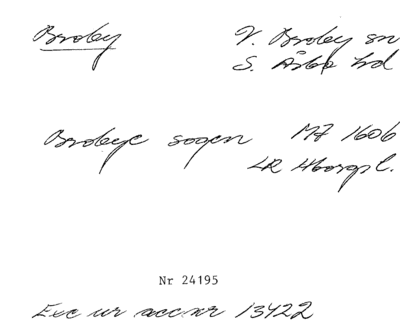 Broby
V. Broby sn
S. Åsbo hd
Brobye sogen MJ 1606
LR Hborgs l.
Nr 24195
Exc ur acc nr 13422